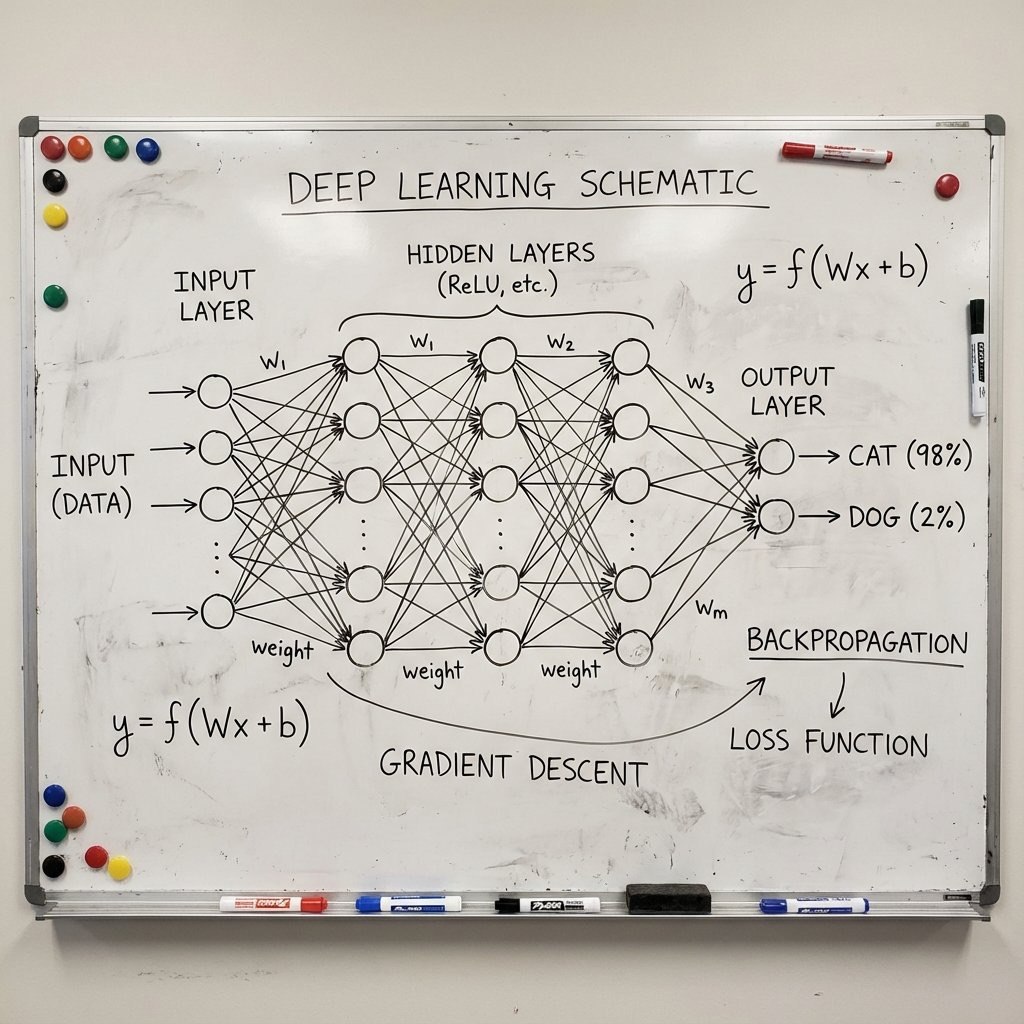 DEEP LEARNING SCHEMATIC
HIDDEN LAYERS
(ReLU, etc.)
INPUT
LAYER
y = f(Wx + b)
W₁
W₁
W₂
W₃
OUTPUT
LAYER
INPUT
(DATA)
CAT (98%)
DOG (2%)
Wm
weight
weight
weight
BACKPROPAGATION
y = f(Wx + b)
LOSS FUNCTION
GRADIENT DESCENT